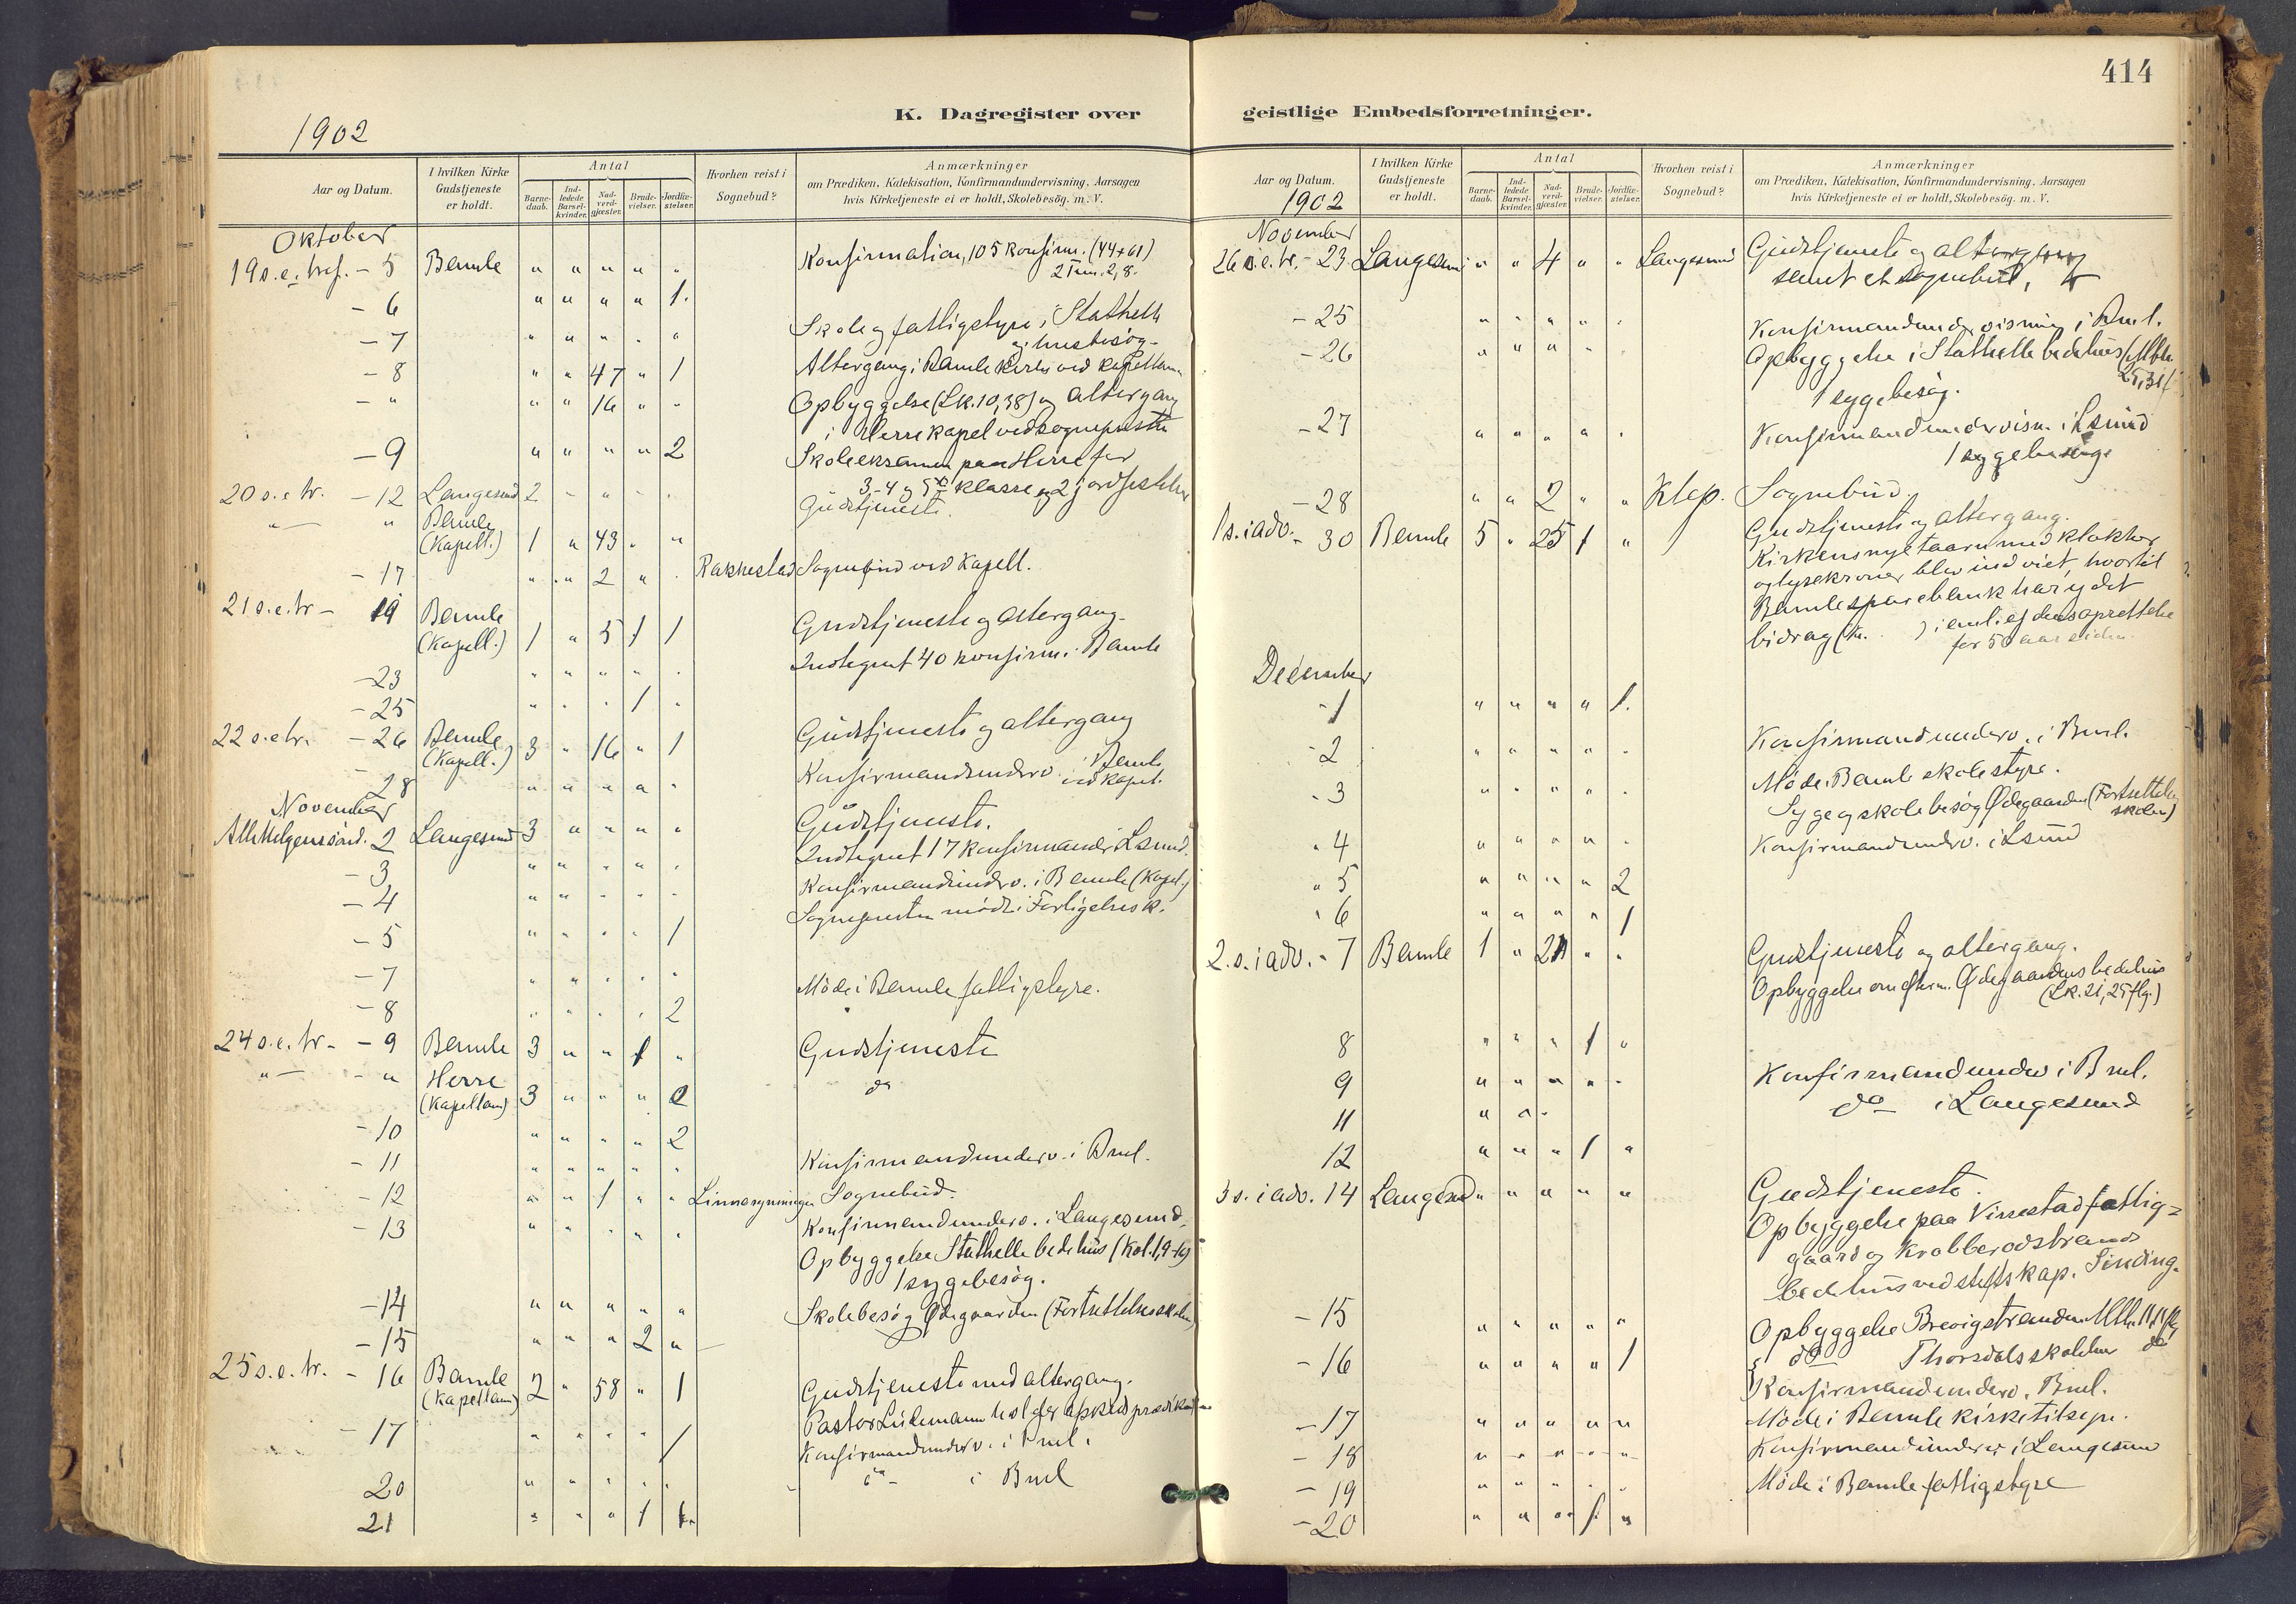 414
K. Dagregister over geistlige Embedsforretninger.
1902
Aar og Datum.
I hvilken Kirke Gudstjeneste er holdt.
Antal
Barnedaab.
Indledede Barselkvinder.
Nadverdgjæster.
Brudevielser.
Jordfæstelser.
Hvorhen reist i Sognebud?
Anmærkninger
om Prædiken, Katekisation, Konfirmandundervisning, Aarsagen
hvis Kirketjeneste ei er holdt, Skolebesög. m. V.
Oktober
19 s.e. tref. - 5 Bamle " " " " " Konfirmation, 105 konfirm. (44+61)
2 Tim. 2, 8.
- 6 " " " " 1.
- 7 " " " " " Skole og fattigstyre i Stathelle
og husbesög -
- 8 " " 47 " 1 Altergang i Bamle kirke ved kapellanen
- " " " 16 " " Opbyggelse (Lk. 10, 38) og altergang
i Herre kapel ved sognepresten
- 9 " " " " 2 Skoleeksamen paa Herre for
3-4 og 5te klasse og 2 jordfestelser
20 s. e tr. - 12 Langesund 2 " " " " Gudstjeneste.
" " Bamle
(Kapell.) 1 " 43 " "
- 17 " " 2 " " Rakkestad Sognebud ved Kapell.
21 s. e. tr - 19 Bamle
(Kapell.) 1 " 5 1 1 Gudstjeneste og altergang -
- 23 " " " " " Indtegnet 40 konfirm. i Bamle
- 25 " " " 1 "
22 s. e tr. - 26 Bamle
(Kapell.) 3 " 16 " 1 Gudstjeneste og altergang
28 " " " " " Konfirmandunderv. i Bamle
ved kapel.
November
Alle Helgens sönd. 2 Langesund 3 " " " " Gudstjeneste.
- 3 " " " " " Indtegnet 17 konfirmander i Lsund.
- 4 " " " " " Konfirmandunderv. i Bamle (Kapel.)
Sognepresten möde i Forligelsesk.
- 5 " " " " 1
- 7 " " " " " Möde i Bamle fattigstyre.
- 8 " " " " 2
24 s. e. tr. - 9 Bamle 3 " " 1 " Gudstjeneste
" - " Herre
(Kapellan) 3 " " " 2 do
- 10 " " " " 2
- 11 " " " " " Konfirmandunderv. i Bml.
- 12 " " 1 " " Sognebud.
- 13 " " " " " Konfirmandunderv. i Langesund.
Opbyggelse Stathelle bedehus (Kol. 1, 9-14)
1 sygebesög.
- 14 " " " " " Skolebesög Ødegaarden (Fortsettelsesskolen)
- 15 " " " 2 "
25 s. e. tr. - 16 Bamle
(Kapellan) 2 " 58 " 1 Gudstjeneste med altergang.
Pastor Lühmann holder afskedsprædiken
- 17 " " " " 1 Konfirmandunderv. i Bml.
20 " " " " " do - i Bml
21 " " " 1 1
Aar og Datum.
1902
I hvilken Kirke Gudstjeneste er holdt.
Antal
Barnedaab.
Indledede Barselkvinder.
Nadverdgjæster.
Brudevielser.
Jordfæstelser.
Hvorhen reist i Sognebud?
Anmærkninger
om Prædiken, Katekisation, Konfirmandundervisning, Aarsagen
hvis Kirketjeneste ei er holdt, Skolebesög. m. V.
November
26 s. e. tr. - 23 Langesund " " 4 " " Langesund Gudstjeneste og altergang
samt et sognebud,
- 25 " " " " " Konfirmandundervisning i Bml.
- 26 " " " " " Opbyggelse i Stathelle bedehus (Mth.
25, 31 f)
1 sygebesög.
- 27 " " " " " Konfirmandundervisn. i Lsund
1 sygebesög
- 28 " " 2 " " Klep. Sognebud.
1 s. i adv. - 30 Bamle 5 " 25 1 " Gudstjeneste og altergang.
Kirkens nye taarn med klokker
og lysekroner blev indviet, hvortil
Bamle sparebank har ydet
bidrag (kr. ) i anl. af dens oprettelse
for 50 aar siden.
December
- 1 " " " " 1.
- 2 " " " " " Konfirmandunderv. i Bml.
- 3 " " " " " Möde i Bamle skolestyre.
Syge og skolebesög Ødegaarden (Fortsettelses
skolen)
" 4 " " " " " Konfirmandunderv. i Lsund
" 5 " " " " 2
" 6 " " " " 1
2. s. i adv. - 7 Bamle 1 " 21 " " Gudstjeneste og altergang.
Opbyggelse om efterm. Ødegaardens bedehus
(Lk. 21, 25 flg.)
8 " " " 1 "
9 " " " " " Konfirmandunderv i Bml.
11 " " " do i Langesund
12 " " " 1 "
3 s. i adv. 14 Langesund " " " " " Gudstjeneste.
Opbyggelse paa Vinestad fattig=
gaard og Krabberödstrand
bedehus ved stiftskap. Sinding.
- 15 " " " " " Opbyggelse Brevigstranden Mth. 11, 11 flg
- 16 " " " " 1 do Thorsdals skolehus do
Konfirmandunderv. Bml.
- 17 " " " " " Möde i Bamle kirketilsyn.
- 18 " " " " " Konfirmandunderv i Langesund
- 19 " " " " " Möde i Bamle fattigstyre
- 20 " " " 1 "